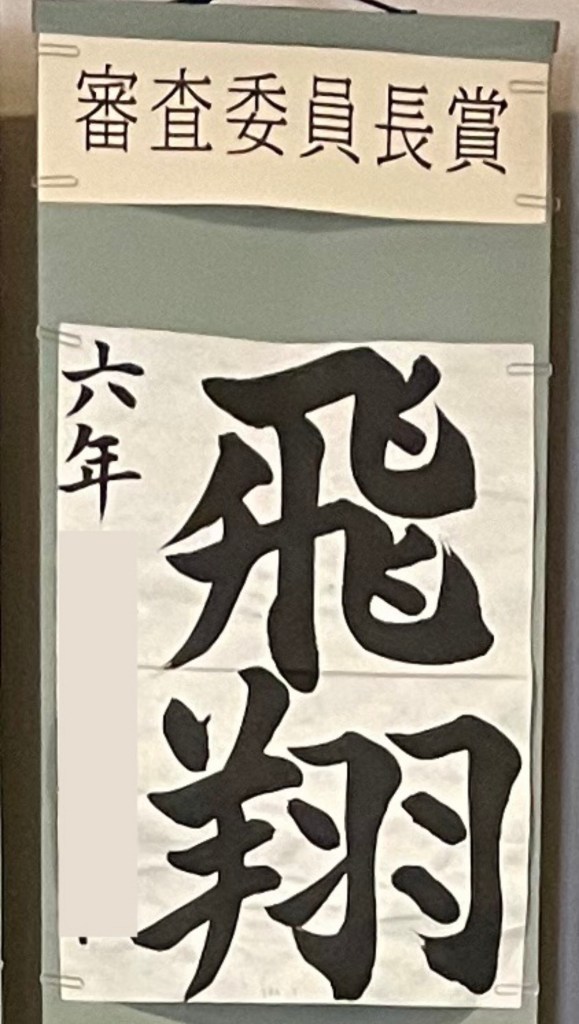 審査委員長賞
飛翔
六年